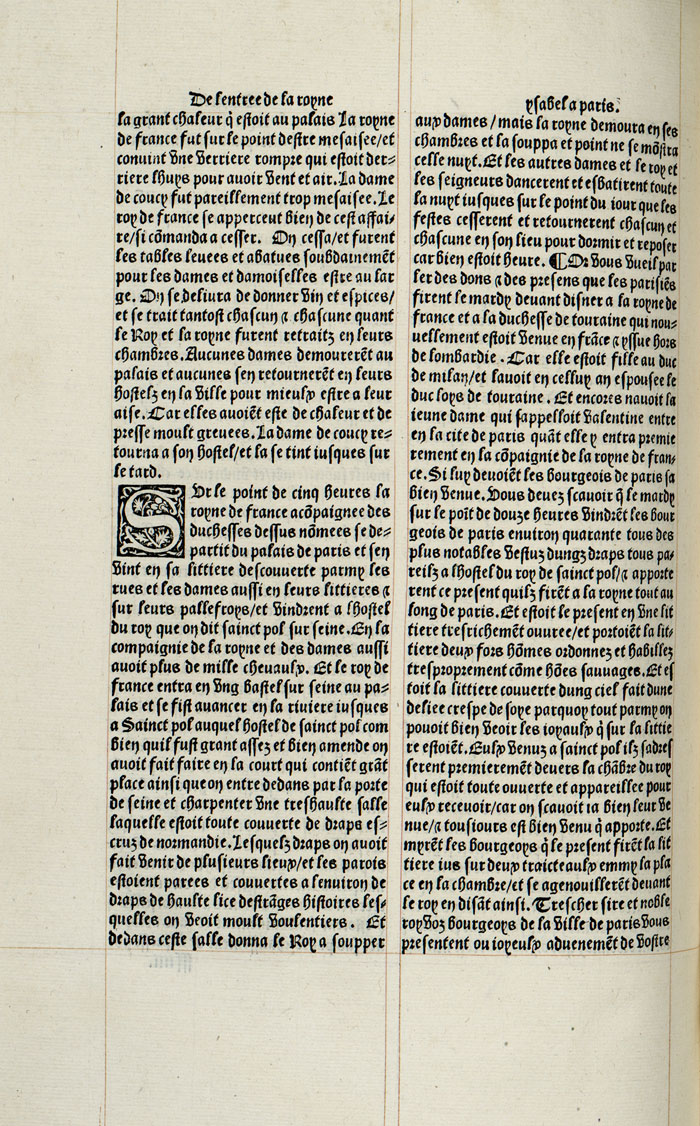 De lentree de la royne
la grant chaleur q̃ estoit au palais La royne
de france fut sur le point destre mesaisee/et
conuint vne verriere rompre qui estoit der⸗
riere lhuys pour auoir vent et air. La dame
de coucy fut pareillement trop mesaisee. Le
roy de france se apperceut bien de cest affai⸗
re/si cõmanda a cesser. On cessa/et furent
les tables leuees et abatues soubdainement
pour les dames et damoiselles estre au lar
ge. On se deliura de donner vin et espices/
et se trait tantost chascun ⁊ chascune quant
le Roy et la royne furent retraitz en leurs
chambres. Aucunes dames demourerẽt au
palais et aucunes sen retournerẽt en leurs
hostelz en la ville pour mieulx estre a leur
aise. Car elles auoiẽt este de chaleur et de
presse moult greuees. La dame de coucy re⸗
tourna a son hostel/et la se tint iusques sur
le tard.
SVr le point de cinq heures la
royne de france acõpaignee des
duchesses dessus nõmees se de⸗
partit du palais de paris et sen
vint en sa littiere descouuerte parmy les
rues et les dames aussi en leurs littieres ⁊
sur leurs pallefroys/et vindrent a lhostel
du roy que on dit sainct pol sur seine. En la
compaignie de la royne et des dames aussi
auoit plus de mille cheuaulx. Et le roy de
france entra en vng bastel sur seine au pa⸗
lais et se fist auancer en la riuiere iusques
a Sainct pol auquel hostel de sainct pol com
bien quil fust grant assez et bien amende on
auoit fait faire en la court qui contiẽt grãt
place ainsi que on entre dedans par la porte
de seine et charpenter vne treshaulte salle
laquelle estoit toute couuerte de draps es⸗
cruz de normandie. Lesquelz draps on auoit
fait venir de plusieurs lieux/et les parois
estoient parees et couuertes a lenuiron de
draps de haulte lice destrãges histoires les⸗
quelles on veoit moult voulentiers. Et
dedans ceste salle donna le Roy a soupper
ysabel a paris.
aux dames/mais la royne demoura en ses
chambres et la souppa et point ne se mõstra
celle nuyt. Et les autres dames et le roy et
les seigneurs dancerent et esbatirent toute
la nuyt iusques sur le point du iour que les
festes cesserent et retournerent chascun et
chascune en son lieu pour dormir et reposer
car bien estoit heure. ¶ Or vous vueil par
ler des dons ⁊ des presens que les parisiẽs
firent le mardy deuant disner a la royne de
france et a la duchesse de touraine qui nou⸗
uellement estoit venue en frãce ⁊ yssue hors
de lombardie. Car elle estoit fille au duc
de milan/et lauoit en celluy an espousee le
duc loys de touraine. Et encores nauoit la
ieune dame qui sappelloit valentine entre
en la cite de paris quãt elle y entra premie
rement en la cõpaignie de la royne de fran⸗
ce. Si luy deuoiẽt les bourgeois de paris sa
bien venue. Vous deuez scauoir q̃ le mardy
sur le poĩt de douze heures vindrẽt les bour
geois de paris enuiron quarante tous des
plus notables vestuz dungz draps tous pa⸗
reilz a lhostel du roy de sainct pol/⁊ apporte
rent ce present quilz firẽt a la royne tout au
long de paris. Et estoit le present en vne lit
tiere tresrichemẽt ouuree/et portoiẽt la lit⸗
tiere deux fors hõmes ordonnez et habillez
tresproprement cõme hões sauuages. Et es
toit la littiere couuerte dung ciel fait dune
deliee crespe de soye parquoy tout parmy on
pouoit bien veoir les ioyaulx q̃ sur la littie
re estoiẽt. Eulx venuz a sainct pol ilz sadres
serent premieremẽt deuers la chãbre du roy
qui estoit toute ouuerte et appareillee pour
eulx recevoir/car on scauoit ia bien leur ve
nue/⁊ tousiours est bien venu q̃ apporte. Et
myrẽt les bourgeoys q̃ le present firẽt la lit
tiere ius sur deux traicteaulx emmy la pla
ce en la chambre/et se agenouillerẽt deuant
le roy en disãt ainsi. Trescher sire et noble
roy voz bourgeois de la ville de paris vous
presentent ou ioyeulx aduenemẽt de vostre